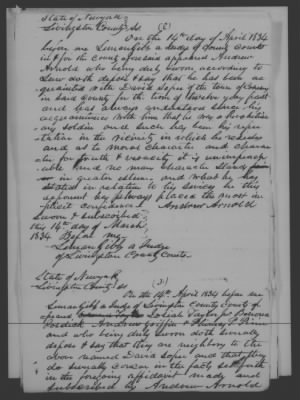 State of Newyork
Livingston County Ss (2)
On the 14th day of April 1834
before me Leman Gibbs a Judge of County Courts
in & for the County aforesaid appeared Andrew
Arnold who being duly Sworn according to
Law doth depose & say that he has been ac
quainted with David Soper of the town of
in said County for the term of twelve years past
and has always understood since his
acquaintance with him that he was a Revolution
ary Soldier and such has been his repu
tation in the vicinity in which he resides
and as to moral Character and Charac
ter for truth & veracity it is unimpeach
able and no mans Character stands
in greater esteem and what he has
stated in relation to his services he this
deponent has always placed the most im
plicit confidence Andrew Arnold
Sworn & Subscribed
this 14th day of March
1834 Before me
Leman Gibbs a Judge
of Livingston County Courts
State of Newyork
Livingston County Ss (3)
On the 14th April 1834 before me
Leman Gibbs a Judge of Livingston County Courts
appeared Josiah Taylor
Andrew
and who being duly Sworn doth severally
depose & say that they are neighbors to the
above named David Soper and that they
do severally concur in the facts set forth
in the foregoing affidavit made and
subscribed by Andrew Arnold